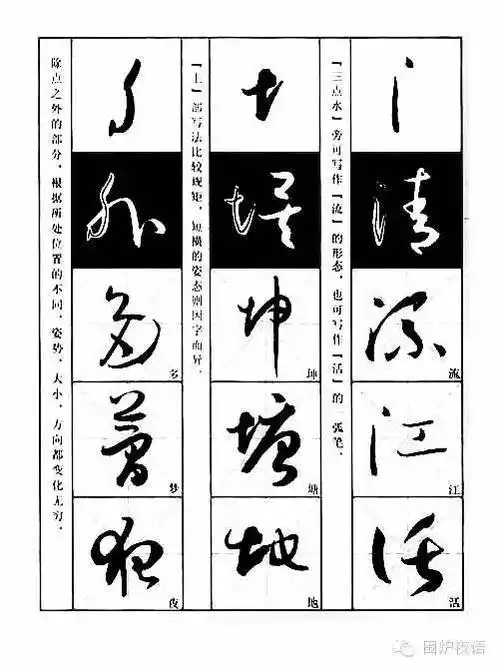 氵
清
流 流
江 江
活 活
「三点水」旁可写作「流」的形态，也可写作「活」的一弧笔。
土
坤 坤
塘 塘
地 地
「土」部写法比较规矩，短横的姿态则因字而异。
夕
外
多 多
梦 梦
夜 夜
除点之外的部分，根据所处位置的不同，姿势、大小、方向都变化无穷。
围炉夜语